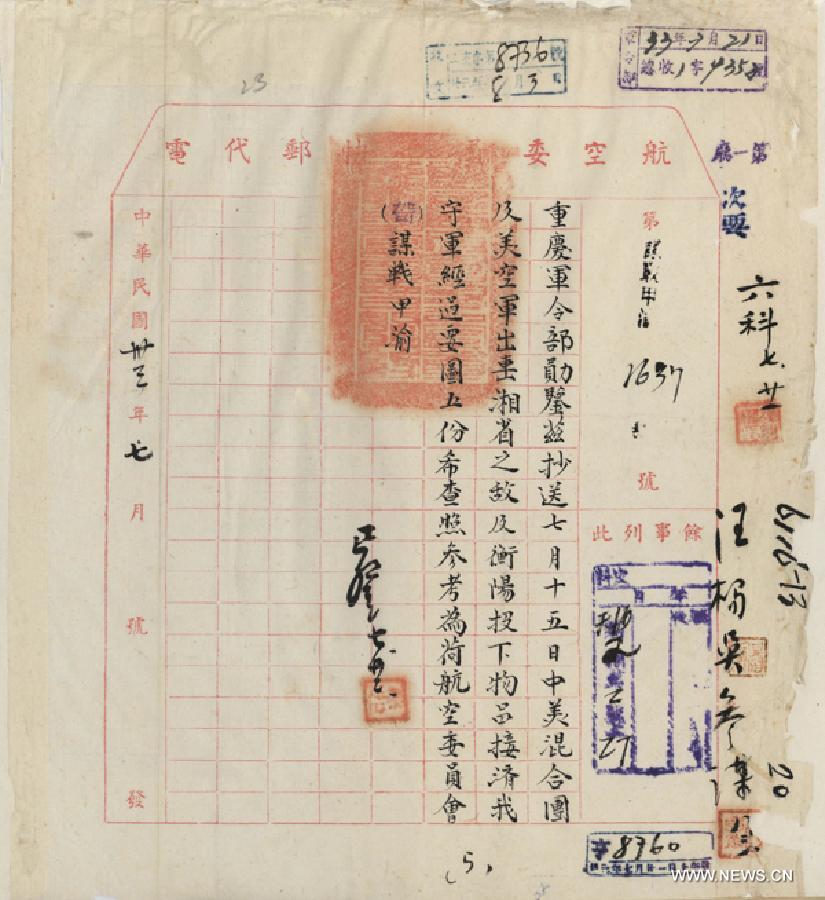 33年7月21日
總收1字4358號
8736
8月3日
23
航空委員會快郵代電
第一廳
次要
六科 七、廿一
第
1637
號
餘事列此
重慶軍令部勛鑒茲抄送七月十五日中美混合團
及美空軍出擊湘省之敵及衡陽投下物品接濟我
守軍經過要圖五份希查照參考為荷航空委員會
謀戰甲渝
中華民國卅三年七月 號發
汪楊吳參謀
20
字8760
(5)
WWW.NEWS.CN